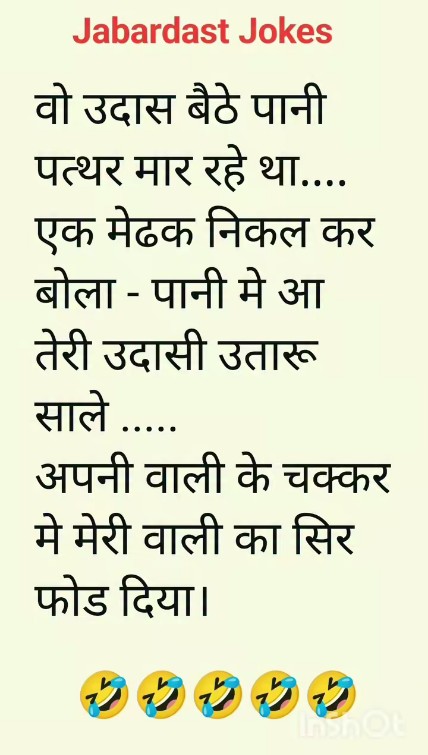 Jabardast Jokes
वो उदास बैठे पानी
पत्थर मार रहे था....
एक मेढक निकल कर
बोला - पानी मे आ
तेरी उदासी उतारू
साले .....
अपनी वाली के चक्कर
मे मेरी वाली का सिर
फोड दिया।
InShOt